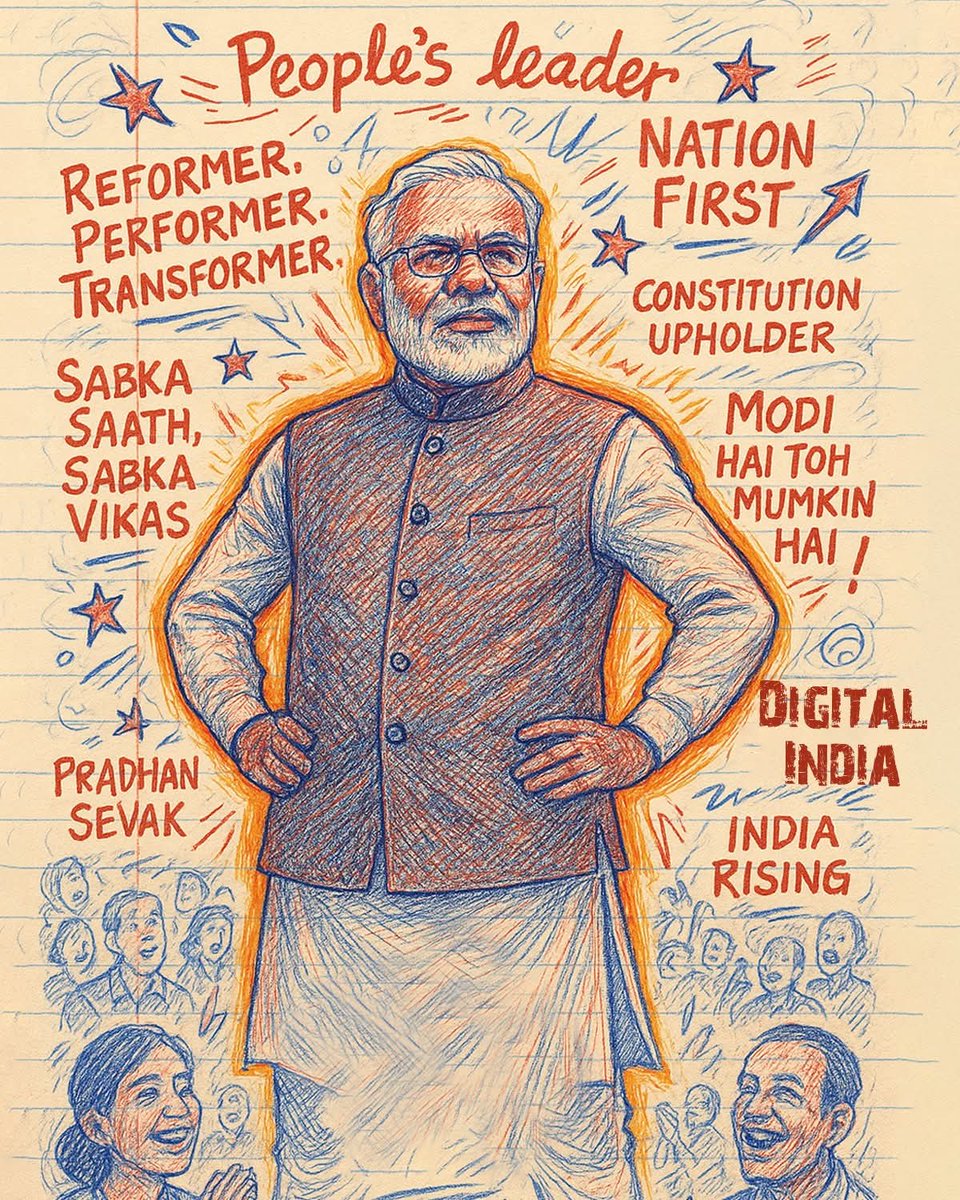 People's leader
REFORMER.
PERFORMER.
TRANSFORMER.
NATION
FIRST
CONSTITUTION
UPHOLDER
SABKA
SAATH,
SABKA
VIKAS
MODI
HAI TOH
MUMKIN
HAI!
DIGITAL
INDIA
PRADHAN
SEVAK
INDIA
RISING